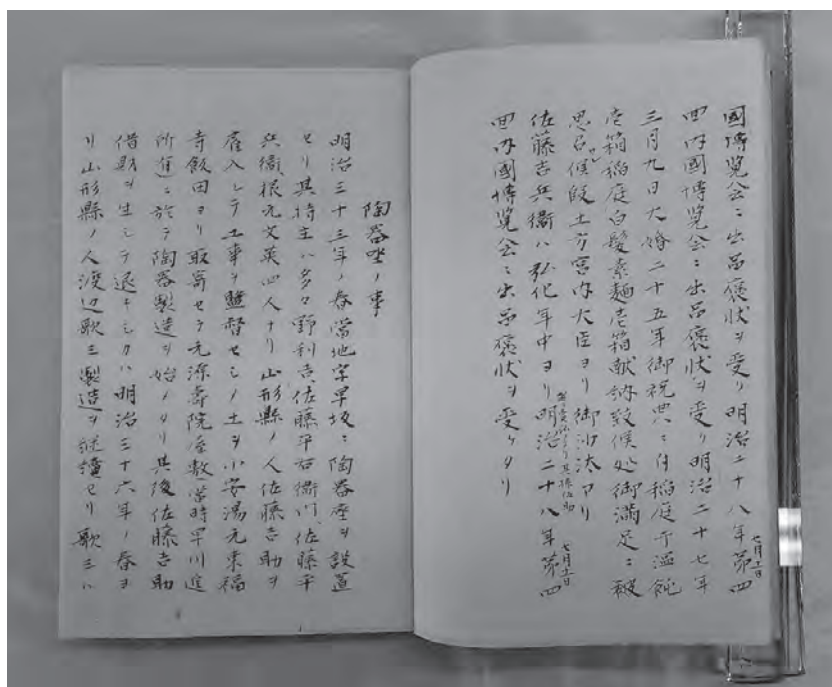 國博覧会ニ出品褒状ヲ受ク明治二十八年第四
七月十一日
囬内國博覧会ニ出品褒状ヲ受ク明治二十七年
三月九日大婚二十五年御祝典ニ付稲庭干温飩
壱箱稲庭白髪素麺壱箱献納致候処御満足ニ被
思召候段土方宮内大臣ヨリ御沙汰アリ
佐藤吉兵衞ハ弘化年中ヨリ明治二十八年第四
七月十一日
囬内國博覧会ニ出品褒状ヲ受ケタリ
陶器塋ノ事
明治三十三年ノ春當地字早坂ニ陶器塋ヲ設置
セリ其持主ハ多々野利吉、佐藤平右衞門、佐藤平
兵衞、根元文英四人ナリ山形縣ノ人佐藤吉助ヲ
雇入レテ工事ヲ監督セシメ土ヲ小安湯元東福
寺飯田ヨリ取寄セテ元源壽院屋敷當時早川進
所有ニ於テ陶器製造ヲ始メタリ其後佐藤吉助
借財ヲ生シテ退キシカハ明治三十六年ノ春ヨ
リ山形縣ノ人渡辺歌三製造ヲ継續セリ歌三ハ